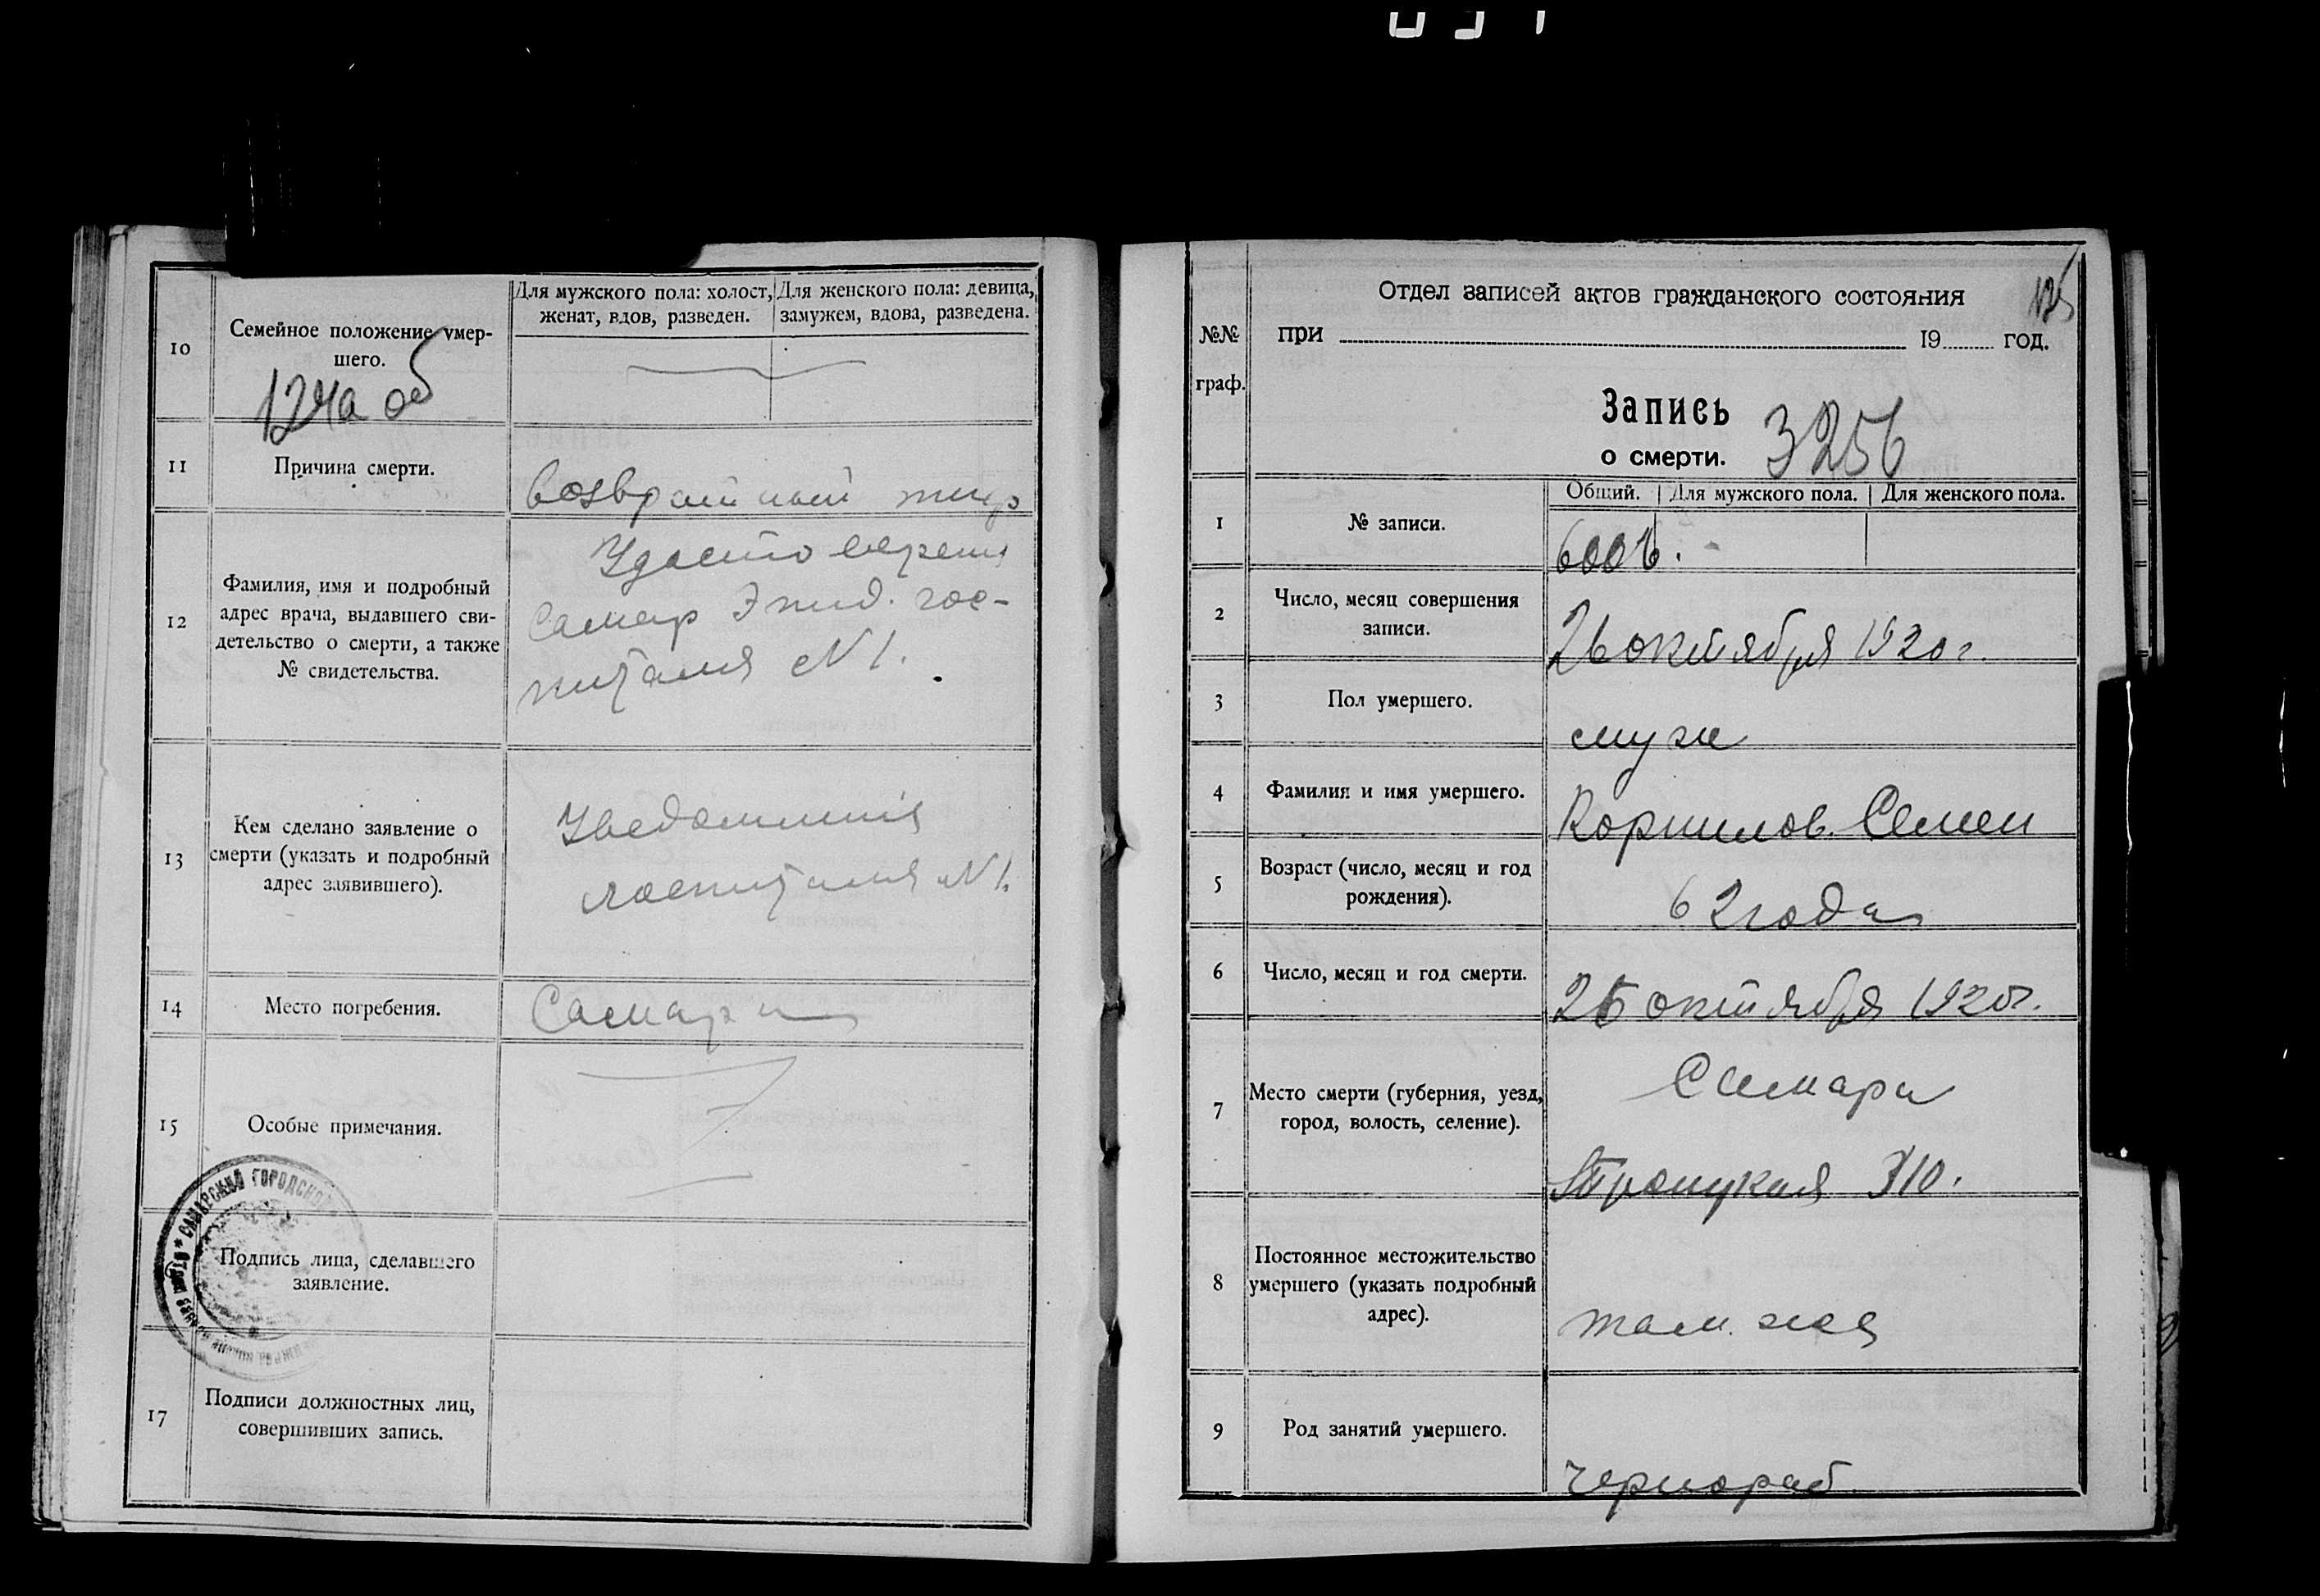 10
Семейное положение умер-
шего.
124а об
Для мужского пола: холост,
женат, вдов, разведен.
Для женского пола: девица,
замужем, вдова, разведена.
11
Причина смерти.
возвратный тиф
12
Фамилия, имя и подробный
адрес врача, выдавшего сви-
детельство о смерти, а также
№ свидетельства.
Удостоверения
Самар Эпид. гос-
питаля №1.
13
Кем сделано заявление о
смерти (указать и подробный
адрес заявившего).
Уведомления
госпиталя №1.
14
Место погребения.
Самара
15
Особые примечания.
САМАРСКИЙ ГОРОДСКОЙ
Подпись лица, сделавшего
заявление.
17
Подписи должностных лиц,
совершивших запись.
125
№№
граф.
Отдел записей актов гражданского состояния
при 19 год.
Запись
о смерти.
3256
Общий.
Для мужского пола.
Для женского пола.
1
№ записи.
6006.
2
Число, месяц совершения
записи.
26 октября 1920 г.
3
Пол умершего.
муж
4
Фамилия и имя умершего.
Корнилов Семен
5
Возраст (число, месяц и год
рождения).
62 года
6
Число, месяц и год смерти.
25 октября 1920 г.
7
Место смерти (губерния, уезд,
город, волость, селение).
Самара
Троицкая
8
Постоянное местожительство
умершего (указать подробный
адрес).
там же
9
Род занятий умершего.
чернораб